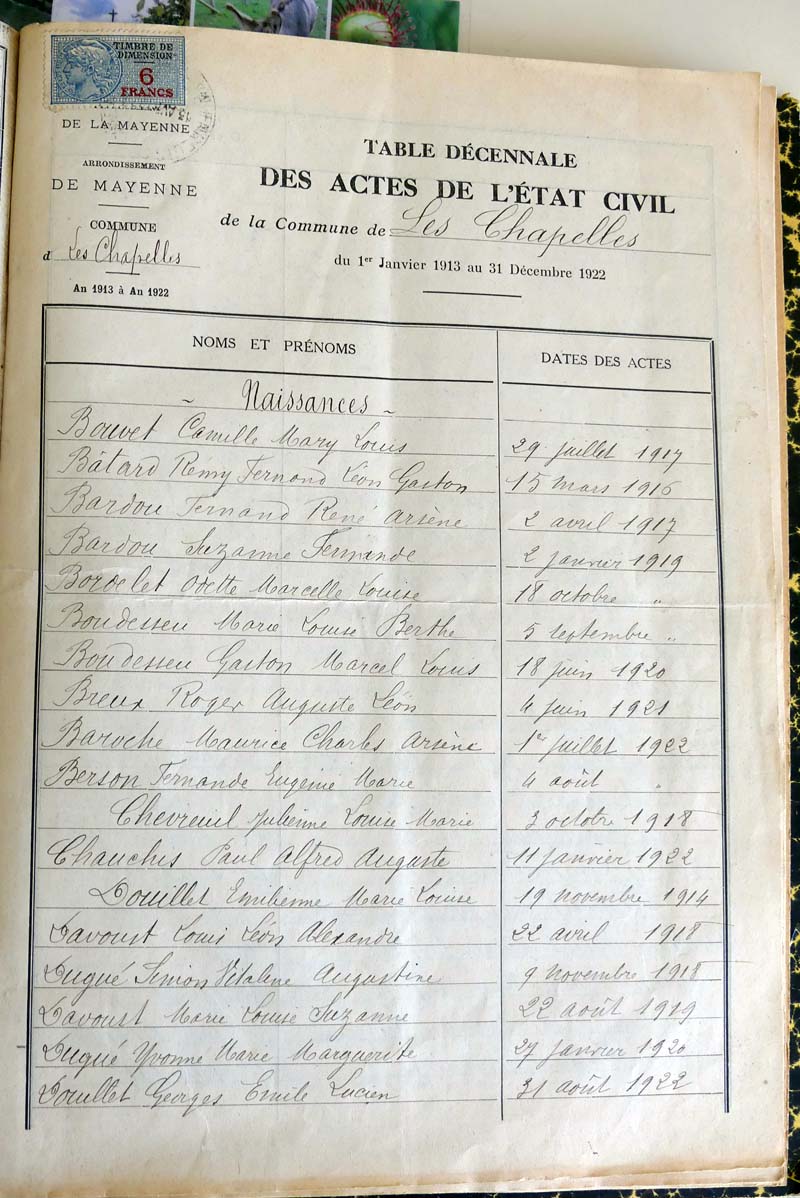 TIMBRE DE
DIMENSION
6
FRANCS
DE LA MAYENNE
ARRONDISSEMENT
DE MAYENNE
COMMUNE
d Les Chapelles
An 1913 à An 1922
TABLE DÉCENNALE
DES ACTES DE L'ÉTAT CIVIL
de la Commune de Les Chapelles
du 1er Janvier 1913 au 31 Décembre 1922
NOMS ET PRÉNOMS DATES DES ACTES
~ Naissances ~
Bouvet Camille Mary Louis 29 juillet 1917
Bâtard Rémy Fernand Léon Gaston 15 mars 1916
Bardou Fernand René Arsène 2 avril 1917
Bardou Suzanne Fernande 2 janvier 1919
Bordelet Odette Marcelle Louise 18 octobre "
Boudesseu Marie Louise Berthe 5 septembre "
Boudesseu Gaston Marcel Louis 18 juin 1920
Breux Roger Auguste Léon 4 juin 1921
Baroche Maurice Charles Arsène 1er juillet 1922
Berson Fernande Eugénie Marie 4 août "
Chevreuil Julienne Louise Marie 3 octobre 1918
Chauchis Paul Alfred Auguste 11 janvier 1922
Douillet Emilienne Marie Louise 19 novembre 1914
Davoust Louis Léon Alexandre 22 avril 1918
Dugué Simon Vitaline Augustine 9 novembre 1918
Davoust Marie Louise Suzanne 22 août 1919
Dugué Yvonne Marie Marguerite 27 janvier 1920
Douillet Georges Emile Lucien 31 août 1922